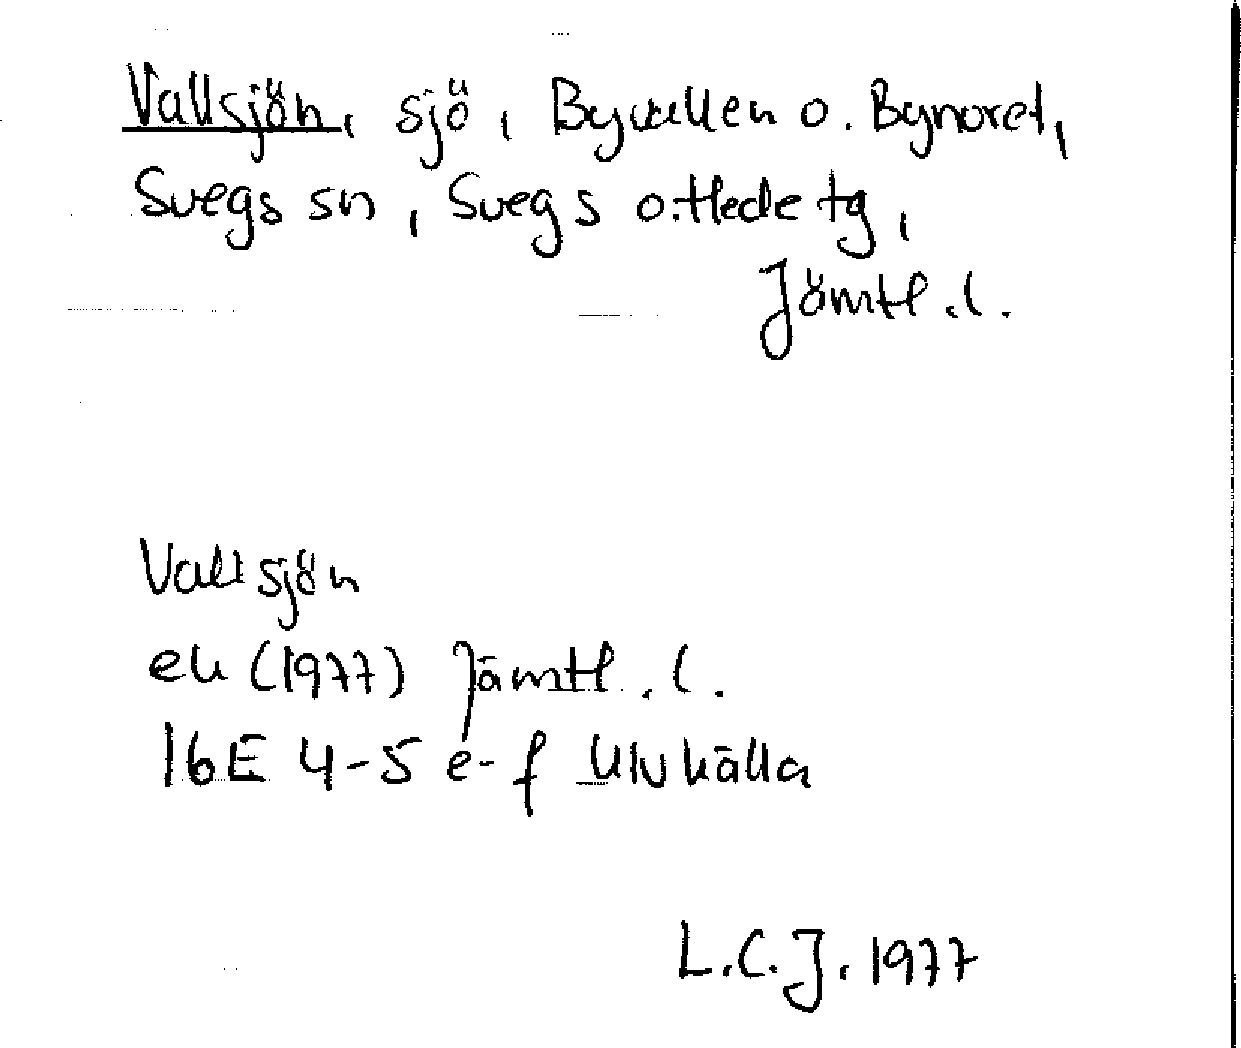 Vallsjön, sjö, Byvallen o. Bynoret,
Svegs sn, Svegs o. Hede tg,
Jämtl. l.
Vallsjön
ek (1977) Jämtl. l.
16E 4-5 e-f Ulvkälla
L.C.J. 1977